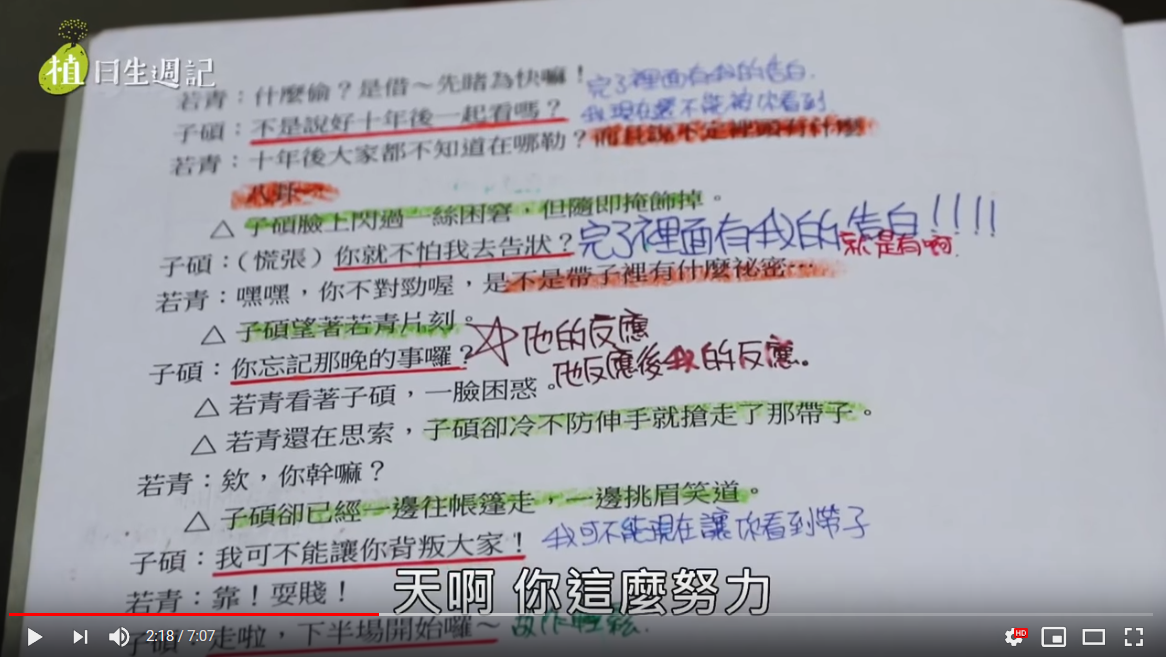 植日生週記
若青：什麼偷？是借～先睹為快嘛！完了裡面有我的告白.
子碩：不是說好十年後一起看嗎？我現在還不能被你看到.
若青：十年後大家都不知道在哪勒？而且說不定裡頭有什麼
八卦～
△ 子碩臉上閃過一絲困窘，但隨即掩飾掉。
子碩：（慌張）你就不怕我去告狀？完了裡面有我的告白!!!!
就是有啊.
若青：嘿嘿，你不對勁喔，是不是帶子裡有什麼祕密…
△ 子碩望著若青片刻。
子碩：你忘記那晚的事囉？☆他的反應
他反應後我的反應。
△ 若青看著子碩，一臉困惑。
△ 若青還在思索，子碩卻冷不防伸手就搶走了那帶子。
若青：欸，你幹嘛？
△ 子碩卻已經一邊往帳篷走，一邊挑眉笑道。
子碩：我可不能讓你背叛大家！我可不能現在讓你看到帶子
若青：靠！耍賤！
天啊 你這麼努力
子碩：走啦，下半場開始囉～故作輕鬆.
2:18 / 7:07
HD